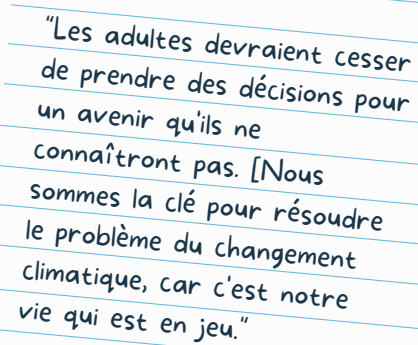 "Les adultes devraient cesser
de prendre des décisions pour
un avenir qu'ils ne
connaîtront pas. [Nous
sommes la clé pour résoudre
le problème du changement
climatique, car c'est notre
vie qui est en jeu."